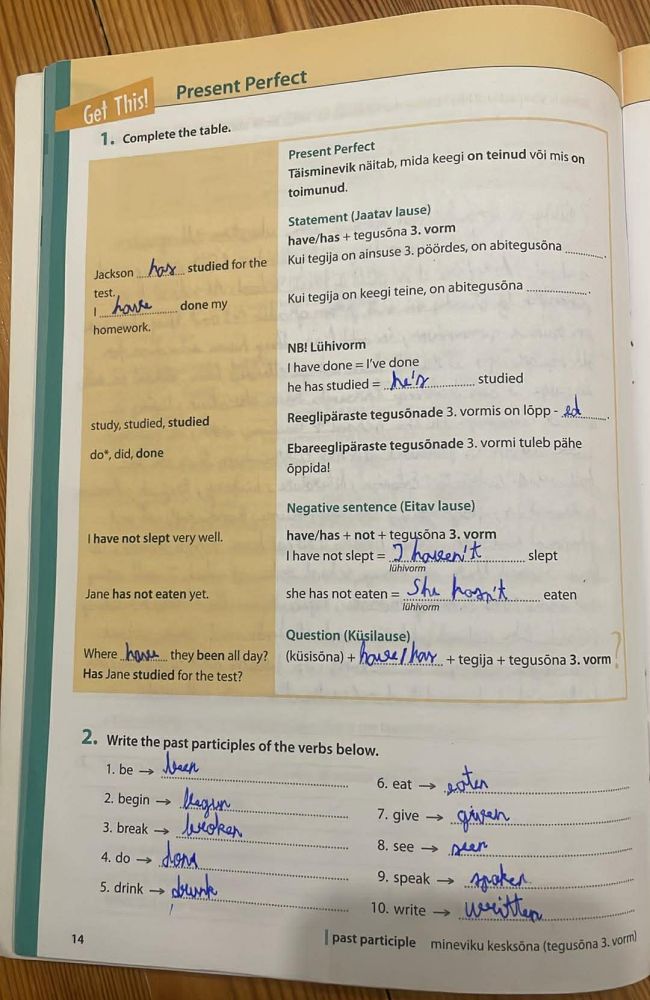 Get This!
Present Perfect
1. Complete the table.
Present Perfect
Täisminevik näitab, mida keegi on teinud või mis on
toimunud.
Statement (Jaatav lause)
have/has + tegusõna 3. vorm
Jackson has studied for the
test.
Kui tegija on ainsuse 3. pöördes, on abitegusõna ............
I have done my
homework.
Kui tegija on keegi teine, on abitegusõna ................
NB! Lühivorm
I have done = I've done
he has studied = he's studied
study, studied, studied
Reeglipäraste tegusõnade 3. vormis on lõpp - ed.
do*, did, done
Ebareeglipäraste tegusõnade 3. vormi tuleb pähe
õppida!
Negative sentence (Eitav lause)
have/has + not + tegusõna 3. vorm
I have not slept very well.
I have not slept = I haven't slept
lühivorm
Jane has not eaten yet.
she has not eaten = She hasn't eaten
lühivorm
Question (Küsilause)
Where have they been all day?
(küsisõna) + have/has + tegija + tegusõna 3. vorm ?
Has Jane studied for the test?
2. Write the past participles of the verbs below.
1. be → been
2. begin → begun
3. break → broken
4. do → done
5. drink → drunk
6. eat → eaten
7. give → given
8. see → seen
9. speak → spoken
10. write → written
14
past participle mineviku kesksõna (tegusõna 3. vorm)